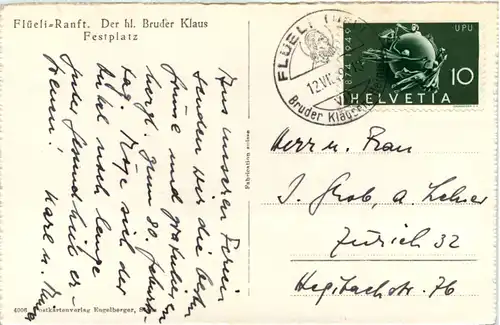 Flüeli-Ranft. Der hl. Bruder Klaus
Festplatz
Aus unseren Ferien
senden wir die besten
Grüsse und gratulieren
herzl. zum 80. Geburts-
tag. Möge sich der
Onkel noch lange
guter Gesundheit er-
freuen! Karl u.
Fabrication suisse
Postkartenverlag Engelberger,
FLÜELI
12.VII.
Bruder Klausen
1874 1949
UPU
10
HELVETIA
Herr u. Frau
J. Grob, a. Lehrer
Zürich 32
Hegibachstr. 76